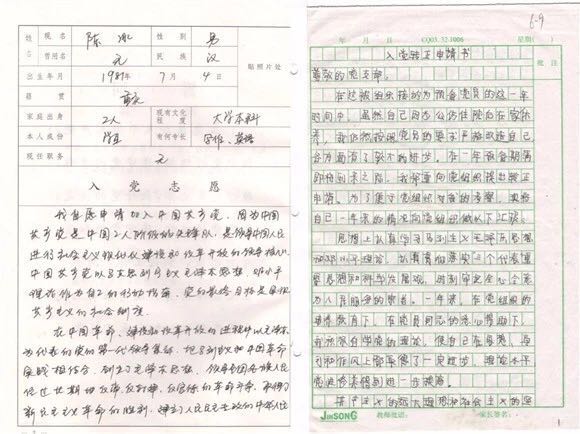 姓 现名 陈 性别 男
名 曾用名 无 民族 汉
出生年月 1987年7月4日
贴照片处
籍贯
家庭出身 工人 现有文化程度 大学本科
本人成份 学生 有何专长 写作、英语
现任职务 无
入党志愿
我自愿申请加入中国共产党，因为中国
共产党是中国工人阶级的先锋队，是领导中国人民
进行社会主义现代化建设和改革开放的领导核心。
中国共产党以马克思列宁主义、毛泽东思想、邓小平
理论作为自己的行动指南，党的最终目标是实现
共产主义的社会制度。
在中国革命、建设和改革开放的进程中以毛泽东
为代表的党的第一代领导集体，把马列主义和中国革命
实践相结合，创立了毛泽东思想，领导全国各族人民
经过长期的反帝、反封建、反官僚的革命斗争，取得了
新民主主义革命的胜利，建立人民民主专政的中华人民
6-9
年 月 日 CQ03.32.1006 星期( )
批注
入党转正申请书
尊敬的党支部：
在过被组织接纳为预备党员的这一年
时间中，虽然自己的办公仍住院白在家休
我仍然按照党员的要求严格改造自己
各方面有了较大的进步。在一年预备期届
即将到来之际，我郑重向党组织提出转正
申请。为了便于党组织对我的考察，现将
自己一年来的情况向党组织做以下汇报。
思想上认真学习马列主义毛泽东思想
邓小平理论，认真贯彻落实三个代表重
要思想和科学发展观，时刻牢记全心全意
为人民服务的宗旨。一年来，在党组织的
培养教育下，在党员同志的关心帮助下，
使自己在思想、学
习和作风上都取得了一定进步，理论水平
党性修养得到进一步提高。
共产主义的远大理想和社会主义的坚
JINSONG 教师批语： 家长签名：
1